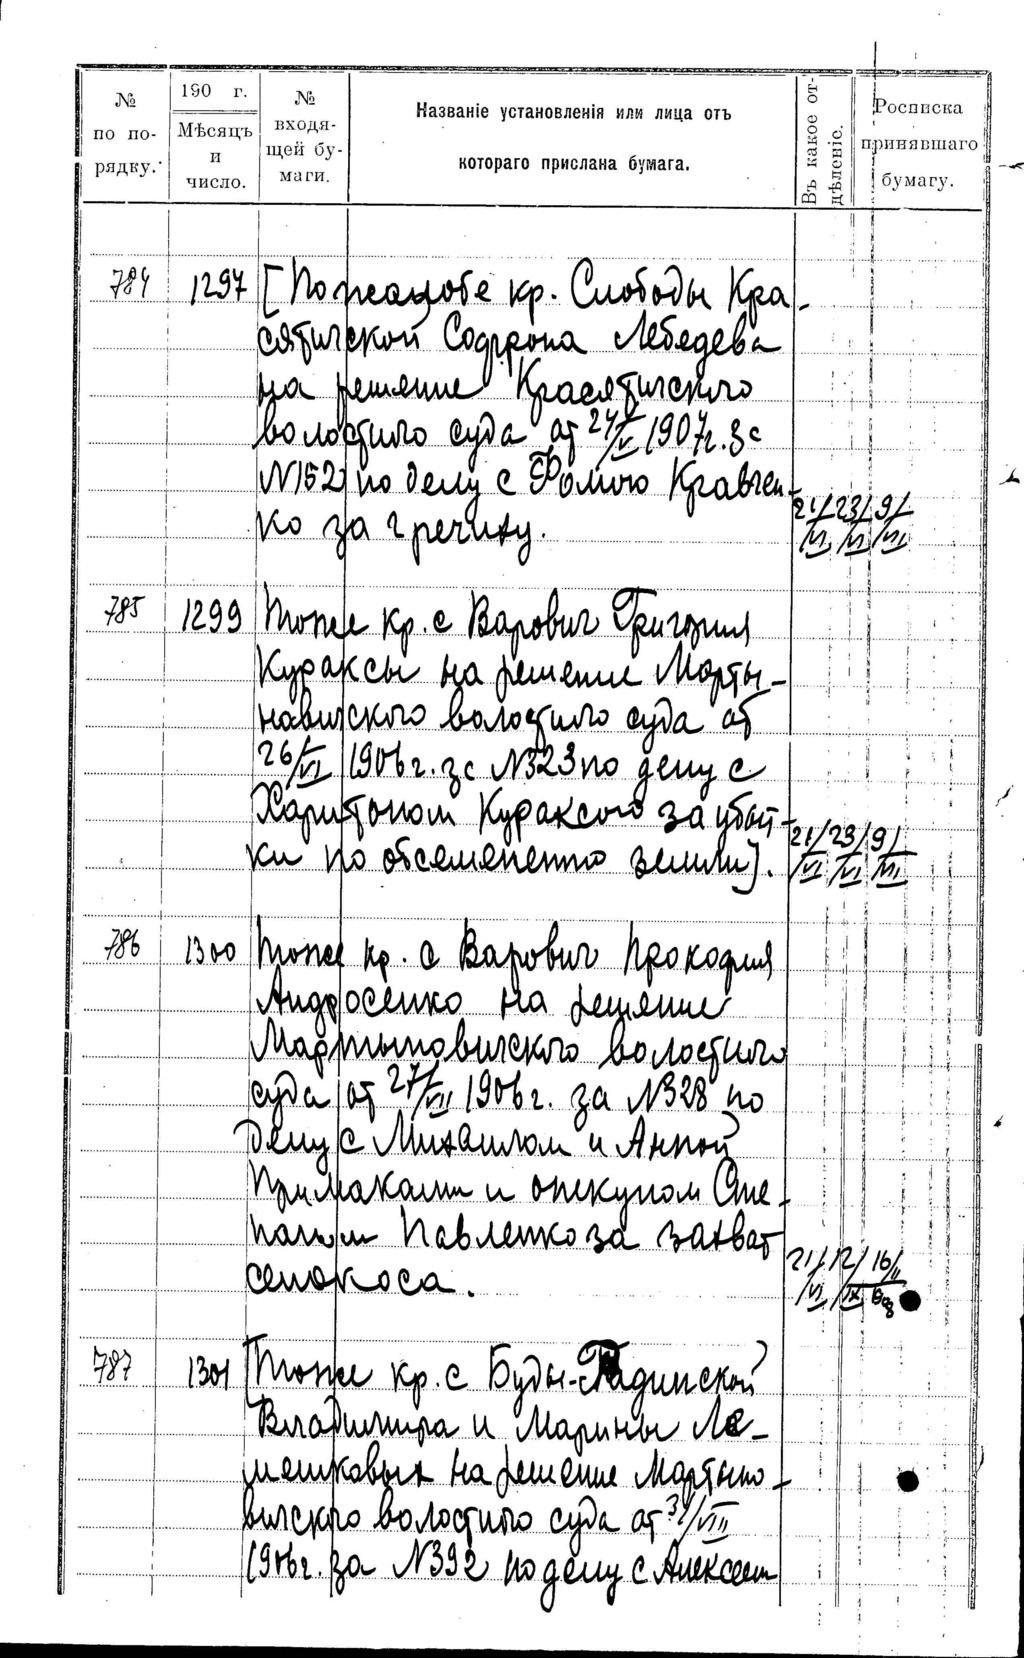 № по порядку.
190 г.
Мѣсяцъ и число.
№ входящей бумаги.
Названіе установленія или лица отъ
котораго прислана бумага.
Въ какое отдѣленіе.
Росписка принявшаго бумагу.
784 1297 [По жалобе кр. Слободы Кра-
сятичской Софрона Лебедева
на решение Красятичского
волостного суда от 24/V 1907г. за
N152 по делу с Фомою Кравчен-
ко за гречиху. 21/VI 23/VI 9/VII
785 1299 Тоже кр. с Варович Григория
Кураксы на решение Марты-
новичского волостного суда от
26/VI 1906г. за N323 по делу с
Харитоном Кураксою за убыт-
ки по обсеменению земли]. 21/VI 23/VI 9/VII
786 1300 Тоже кр. с Варович Прокофия
Андросенко на решение
Мартыновичского волостного
суда от 27/VII 1906г. за N328 по
делу с Михаилом и Анной
Примаками и опекуном Сте-
паном Павленко за захват
сенокоса. 21/VI 12/IX 16/II 908
787 1301 [Тоже кр. с Буды-Радинской
Владимира и Марины Ле-
мешковых на решение Мартыно-
вичского волостного суда от 31/VIII
1906г. за N392 по делу с Алексеем